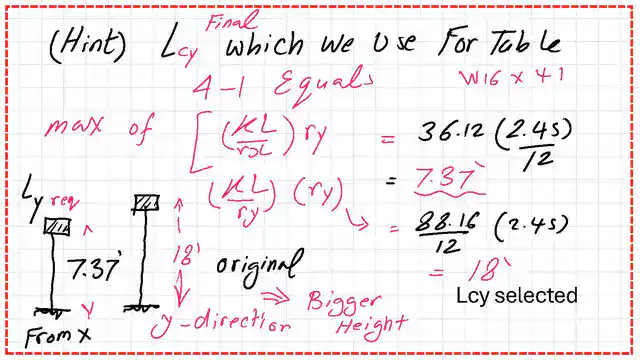 Final
(Hint) Lcy which we Use For Table
4-1 Equals W16 x 41
max of [ (KL/rx) ry = 36.12 (2.45)/12
= 7.37'
(KL/ry) (ry) = 88.16/12 (2.45)
= 18'
Lcy selected
Ly req
7.37'
From x
18'
original
y-direction ⇒ Bigger
Height